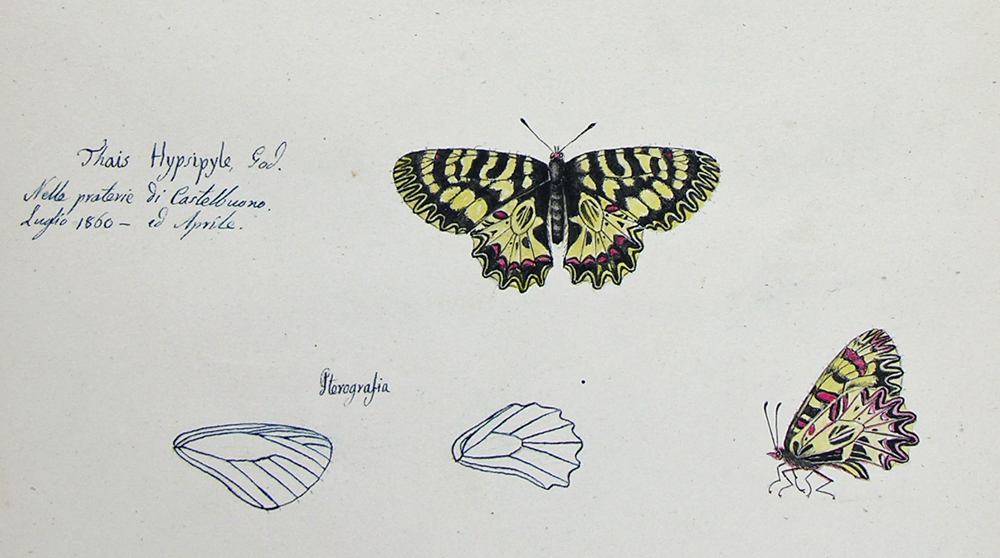 Thais Hypsipyle, God.
Nelle praterie di Castelbuono.
Luglio 1860 – ed Aprile.
Pterografia